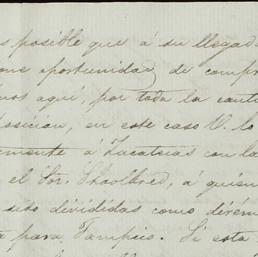 es posible que á su llegada
oportunidad de compr
aquí, por toda la canti
posicion, en este caso V. lo
emente á Zacatecas con la
el Sor. Schoolbred, á quien
sido divididas como dirém
para Tampico. Si esta